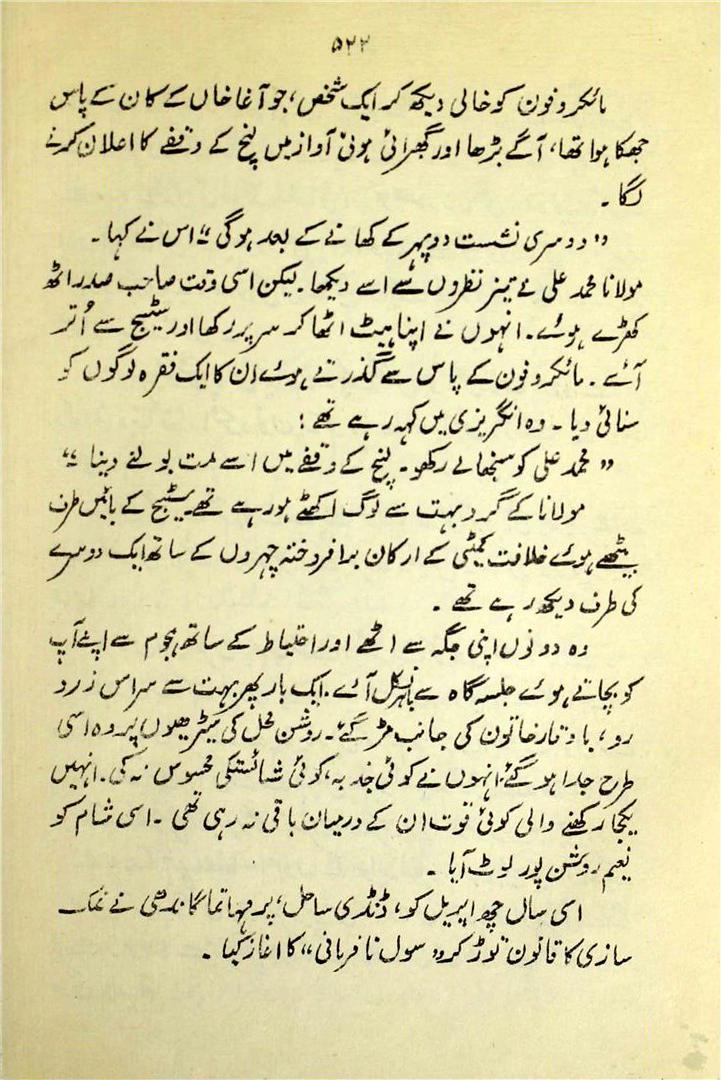 ۵۲۲
مائکروفون کو خالی دیکھ کر ایک شخص، جو آغا خاں کے کان کے پاس
جھکا ہوا تھا، آگے بڑھا اور گھبرائی ہوئی آواز میں لنچ کے وقفے کا اعلان کرنے
لگا۔
”دوسری نشست دوپہر کے کھانے کے بعد ہوگی“ اس نے کہا۔
مولانا محمد علی نے تیز نظروں سے اسے دیکھا۔ لیکن اسی وقت صاحب صدر اٹھ
کھڑے ہوئے۔ انہوں نے اپنا ہیٹ اٹھا کر سر پر رکھا اور سٹیج سے اُتر
آئے۔ مائکروفون کے پاس سے گذرتے ہوئے ان کا ایک فقرہ لوگوں کو
سنائی دیا۔ وہ انگریزی میں کہہ رہے تھے:
”محمد علی کو سنبھالے رکھو۔ لنچ کے وقفے میں اسے مت بولنے دینا“
مولانا کے گرد بہت سے لوگ اکٹھے ہو رہے تھے۔ سٹیج کے بائیں طرف
بیٹھے ہوئے خلافت کمیٹی کے ارکان برافروختہ چہروں کے ساتھ ایک دوسرے
کی طرف دیکھ رہے تھے۔
وہ دونوں اپنی جگہ سے اٹھے اور احتیاط کے ساتھ ہجوم سے اپنے آپ
کو بچاتے ہوئے جلسہ گاہ سے باہر نکل آئے۔ ایک بار پھر بہت سے سر اس زرد
رو، باوقار خاتون کی جانب مڑ گئے۔ روشن محل کی سیڑھیوں پر وہ اسی
طرح جدا ہو گئے، انہوں نے کوئی جذبہ، کوئی شائستگی محسوس نہ کی۔ انہیں
یکجا رکھنے والی کوئی قوت ان کے درمیان باقی نہ رہی تھی۔ اسی شام کو
نعیم روشن پور لوٹ آیا۔
اسی سال چھ اپریل کو، ڈنڈی ساحل، پر مہاتما گاندھی نے نمک
سازی کا قانون توڑ کر ”سول نافرمانی“ کا آغاز کیا۔